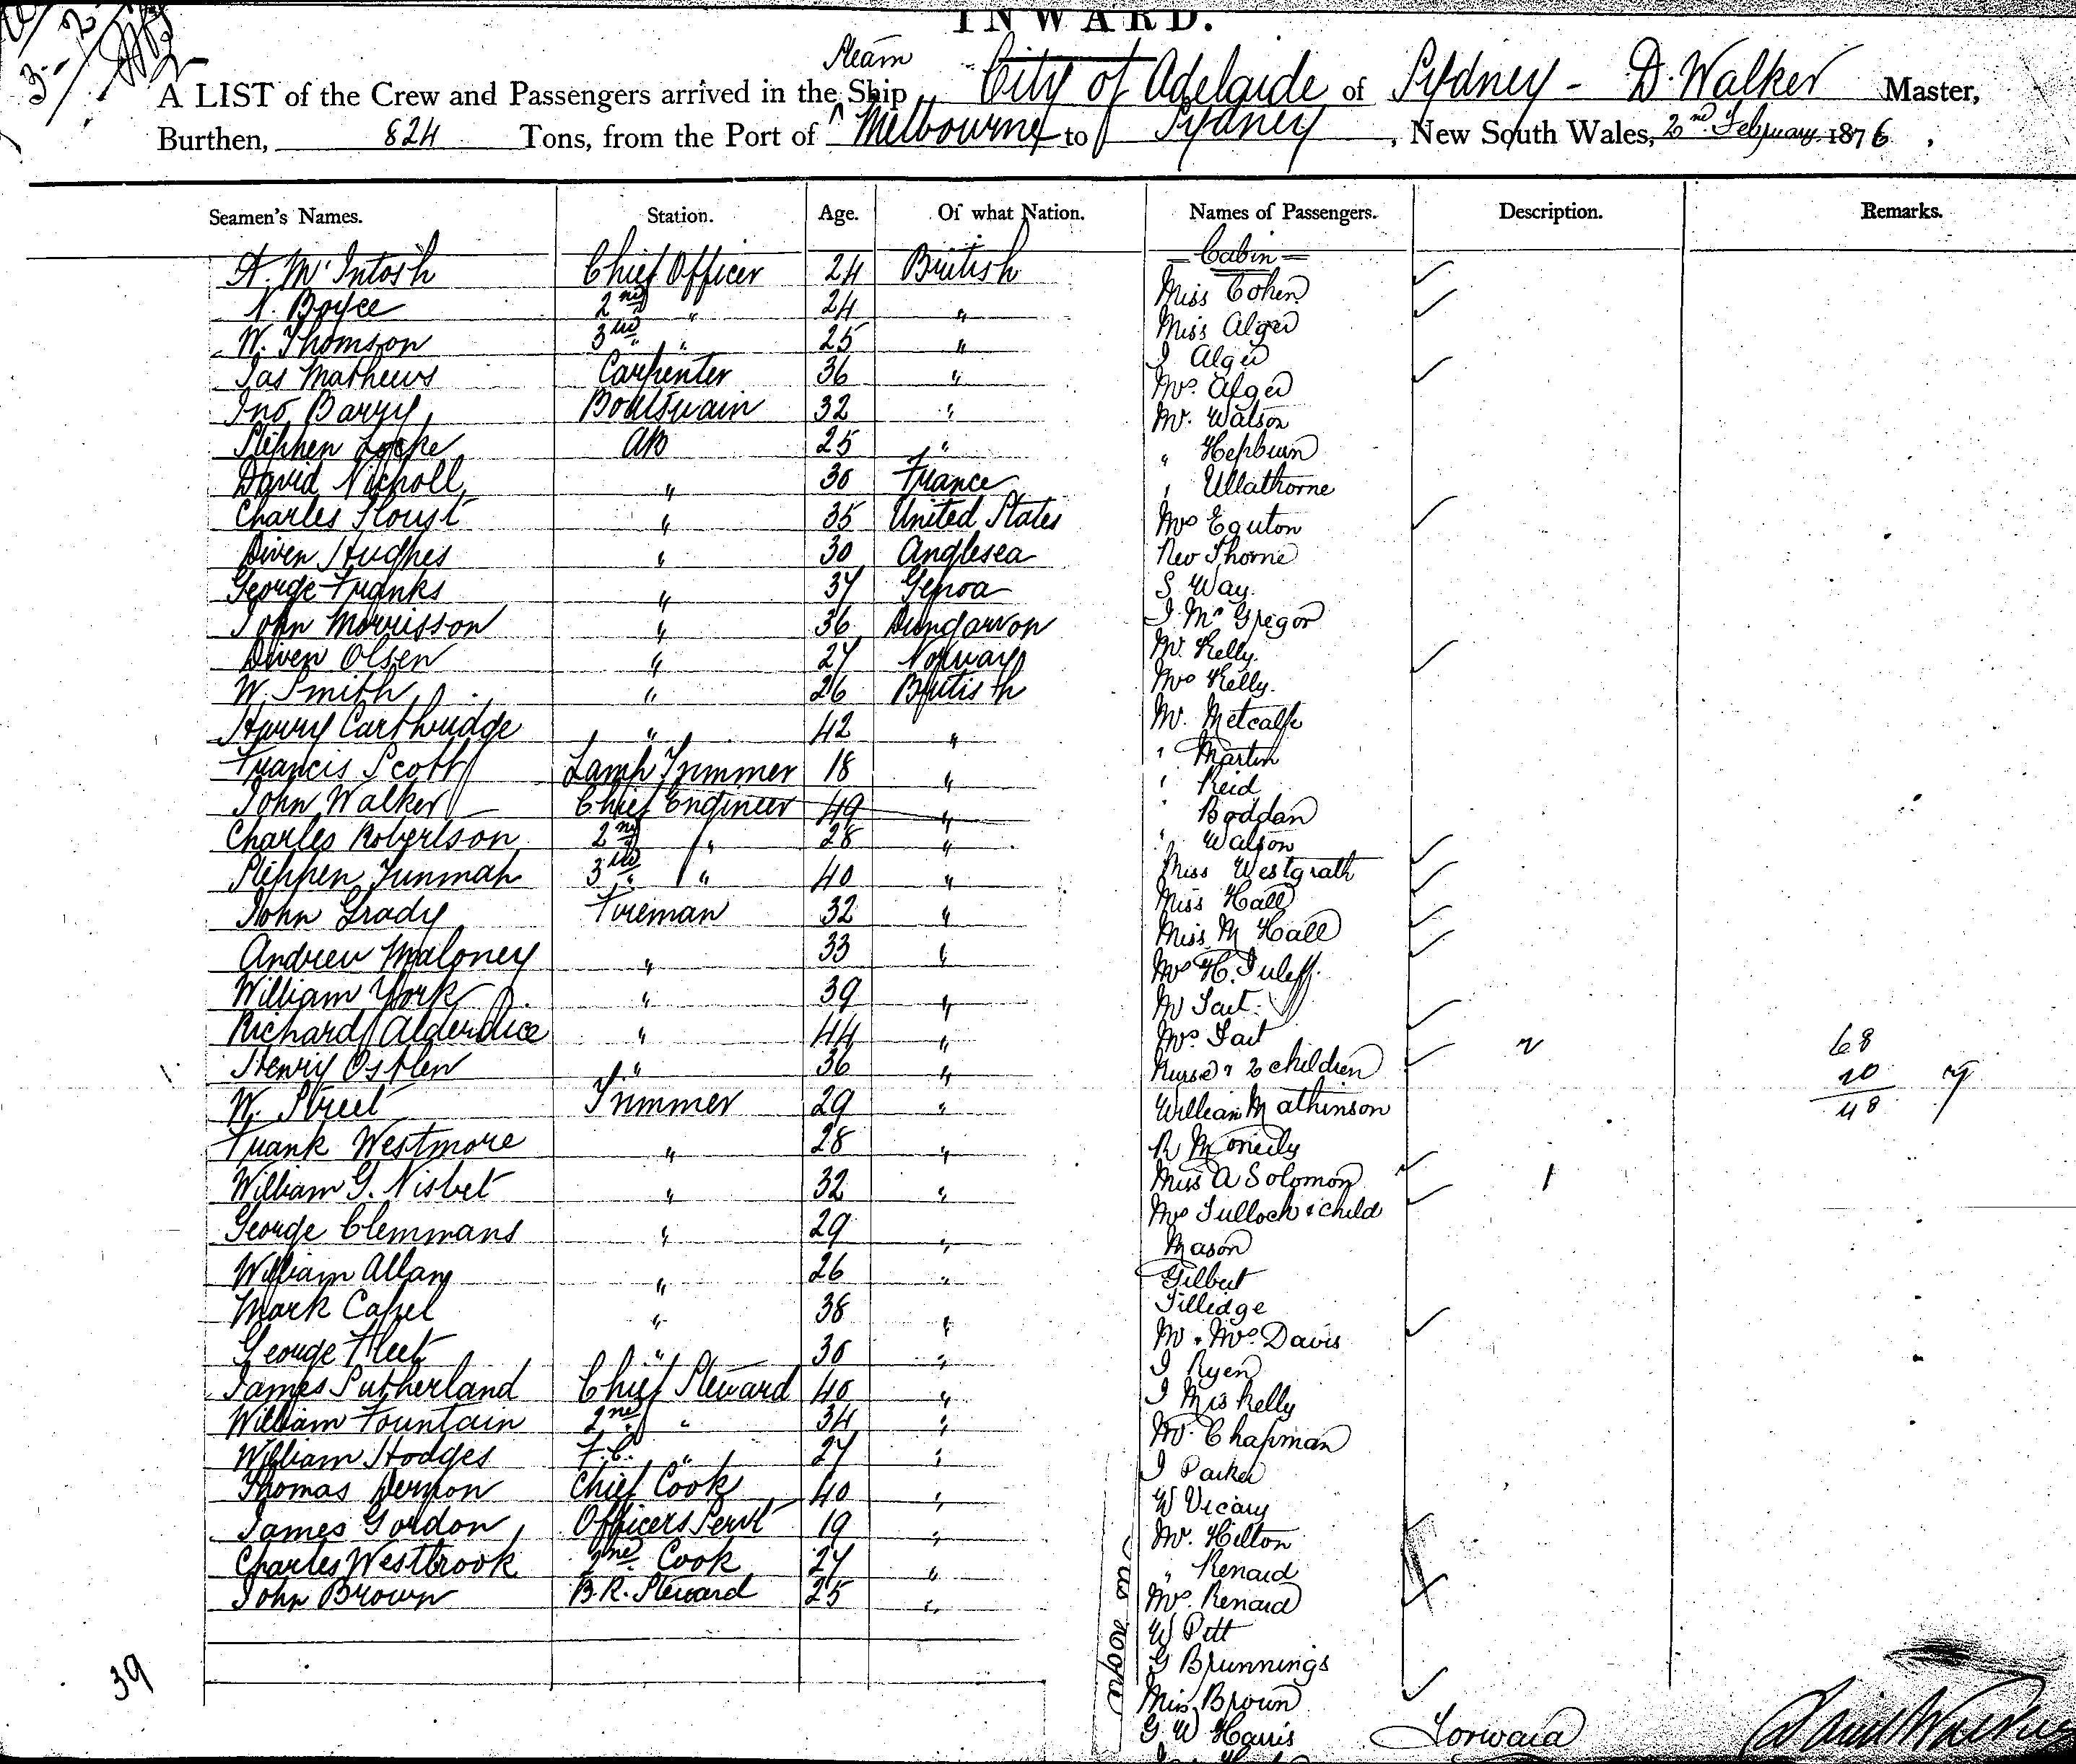 INWARD.
A LIST of the Crew and Passengers arrived in the Steam Ship City of Adelaide of Sydney - D. Walker Master,
Burthen, 824 Tons, from the Port of Melbourne to Sydney, New South Wales, 2nd February 1876,
Seamen's Names. Station. Age. Of what Nation. Names of Passengers. Description. Remarks.
A. McIntosh Chief Officer 24 British
N. Boyce 2nd " 24 "
W. Thomson 3rd " 25 "
Jas Mathews Carpenter 36 "
Jno Barry Boatswain 32 "
Stephen Locke AB 25 "
David Nicholl " 30 France
Charles " 35 United States
Owen Hughes " 30 Anglesea
George Franks " 37 Genoa
John Morrisson " 36 Dungarvon
Owen Olsen " 27 Norway
W. Smith " 26 British
Harry Carthridge " 42 "
Francis Scott Lamp Trimmer 18 "
John Walker Chief Engineer 49 "
Charles Robertson 2nd " 28 "
Stephen 3rd " 40 "
John Grady Fireman 32 "
Andrew Maloney " 33 "
William York " 39 "
Richard Alderdice " 44 "
Henry Osthen " 36 "
W. Street Trimmer 29 "
Frank Westmore " 28 "
William G. Nisbet " 32 "
George Clemmans " 29 "
William Allan " 26 "
Mark Capel " 38 "
George Fleet " 30 "
James Sutherland Chief Steward 40 "
William Fountain 2nd " 34 "
William Hodges F.C. " 27 "
Thomas Vernon Chief Cook 40 "
James Gordon Officers Servt 19 "
Charles Westbrook 2nd Cook 27 "
John Brown B.R. Steward 25 "
39
Cabin
Miss Cohen
Miss Alger
J Alger
Mrs. Alger
Mr. Watson
" Hepburn
" Ullathorne
Mrs Eguton
Rev Thorne
S Way.
J. McGregor
Mr. Kelly.
Mrs Kelly.
Mr. Metcalfe
" Martin
" Reid
" Boddan
" Watson
Miss Westgrath
Miss Hall
Miss M Hall
Mrs H. Juleff.
Mr Tait.
Mrs. Tait
Nurse & 2 children 2
William Mathinson
R McOneily
Miss A Solomon
Mrs Tulloch & child 1
Mason
Gilbert
Tilledge
Mr. & Mrs. Davis
J Ryen
J Kelly
Mr. Chapman
J Parker
W Vicary
Mr. Hilton
" Renard
Mrs. Renard
W Pett
G Brunnings
Miss Brown
G W Harris
68
20
48
Forward
David Walker